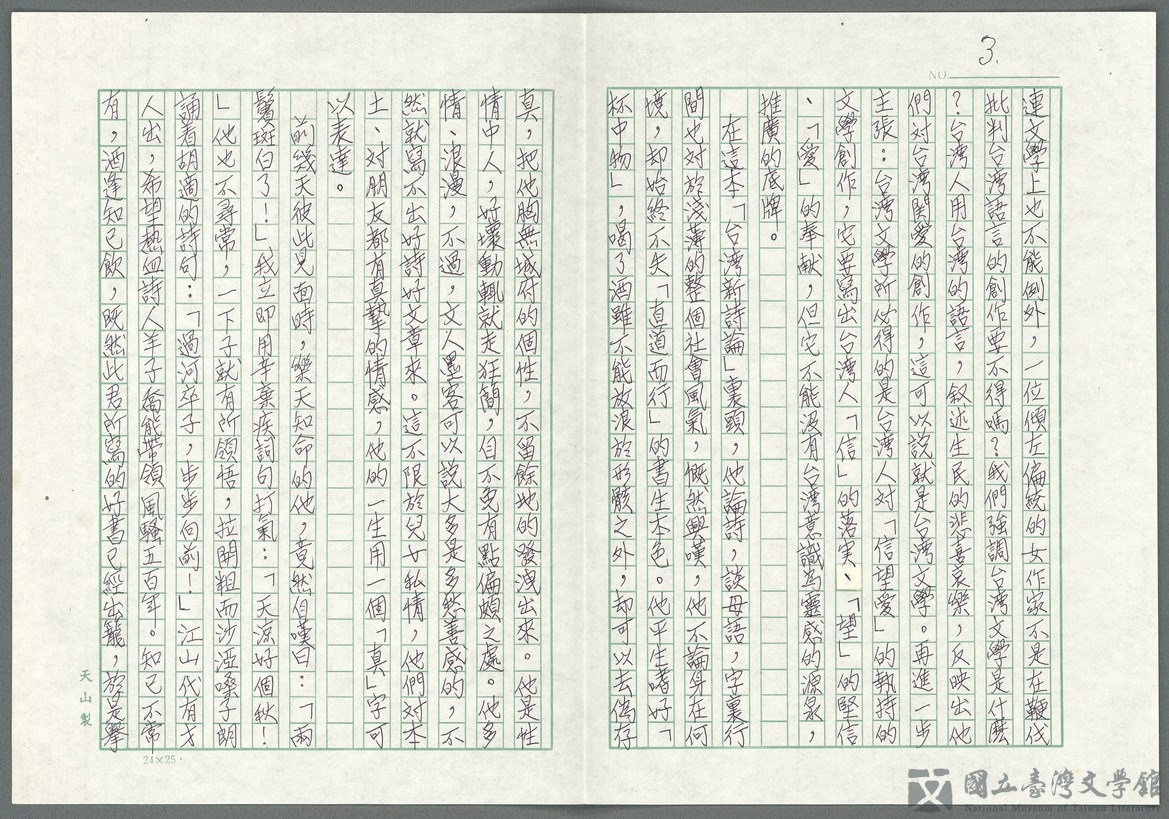 3.
NO
連文學上也不能例外，一位傾左偏統的女作家不是在鞭伐
批判台湾語言的創作要不得嗎？我們強調台湾文學是什麼
？台湾人用台湾的語言，叙述生民的悲喜哀樂，反映出他
們對台湾関愛的創作，這可以說就是台湾文學。再進一步
主張：台湾文學所必得的是台湾人对「信望愛」的執持的
文學創作，它要寫出台湾人「信」的落実、「望」的堅信
、「愛」的奉献，但它不能没有台湾意識為靈感的源泉，
推廣的底牌。
在這本「台湾新詩論」裏頭，他論詩，談母語，字裏行
間也对於淺薄的整個社會風氣，慨然興嘆，他不論身在何
境，却始終不失「直道而行」的書生本色。他平生嗜好「
杯中物」，喝了酒雖不能放浪於形骸之外，却可以去偽存
真，把他胸無城府的個性，不留餘地的發洩出來。他是性
情中人，好壞動輒就走狂簡，自不免有點偏頗之處。他多
情、浪漫，不過，文人墨客可以說大多是多愁善感的，不
然就寫不出好詩好文章來。這不限於兒女私情，他們对本
土、对朋友都有真摯的情感，他的一生用一個「真」字可
以表達。
前幾天彼此見面時，樂天知命的他，竟然自嘆曰：「兩
鬢斑白了！」我立即用辛棄疾詞句打氣：「天凉好個秋！
」他也不尋常，一下子就有所領悟，拉開粗而沙涩嗓子朗
誦着胡適的詩句：「過河卒子，步步向前！」江山代有才
人出，希望熱血詩人羊子喬能帶領風騷五百年。知己不常
有，酒逢知己飲，既然此君所寫的好書已經出籠，於是擧
天山製
24×25
國立臺灣文學館
National Museum of Taiwan Literature